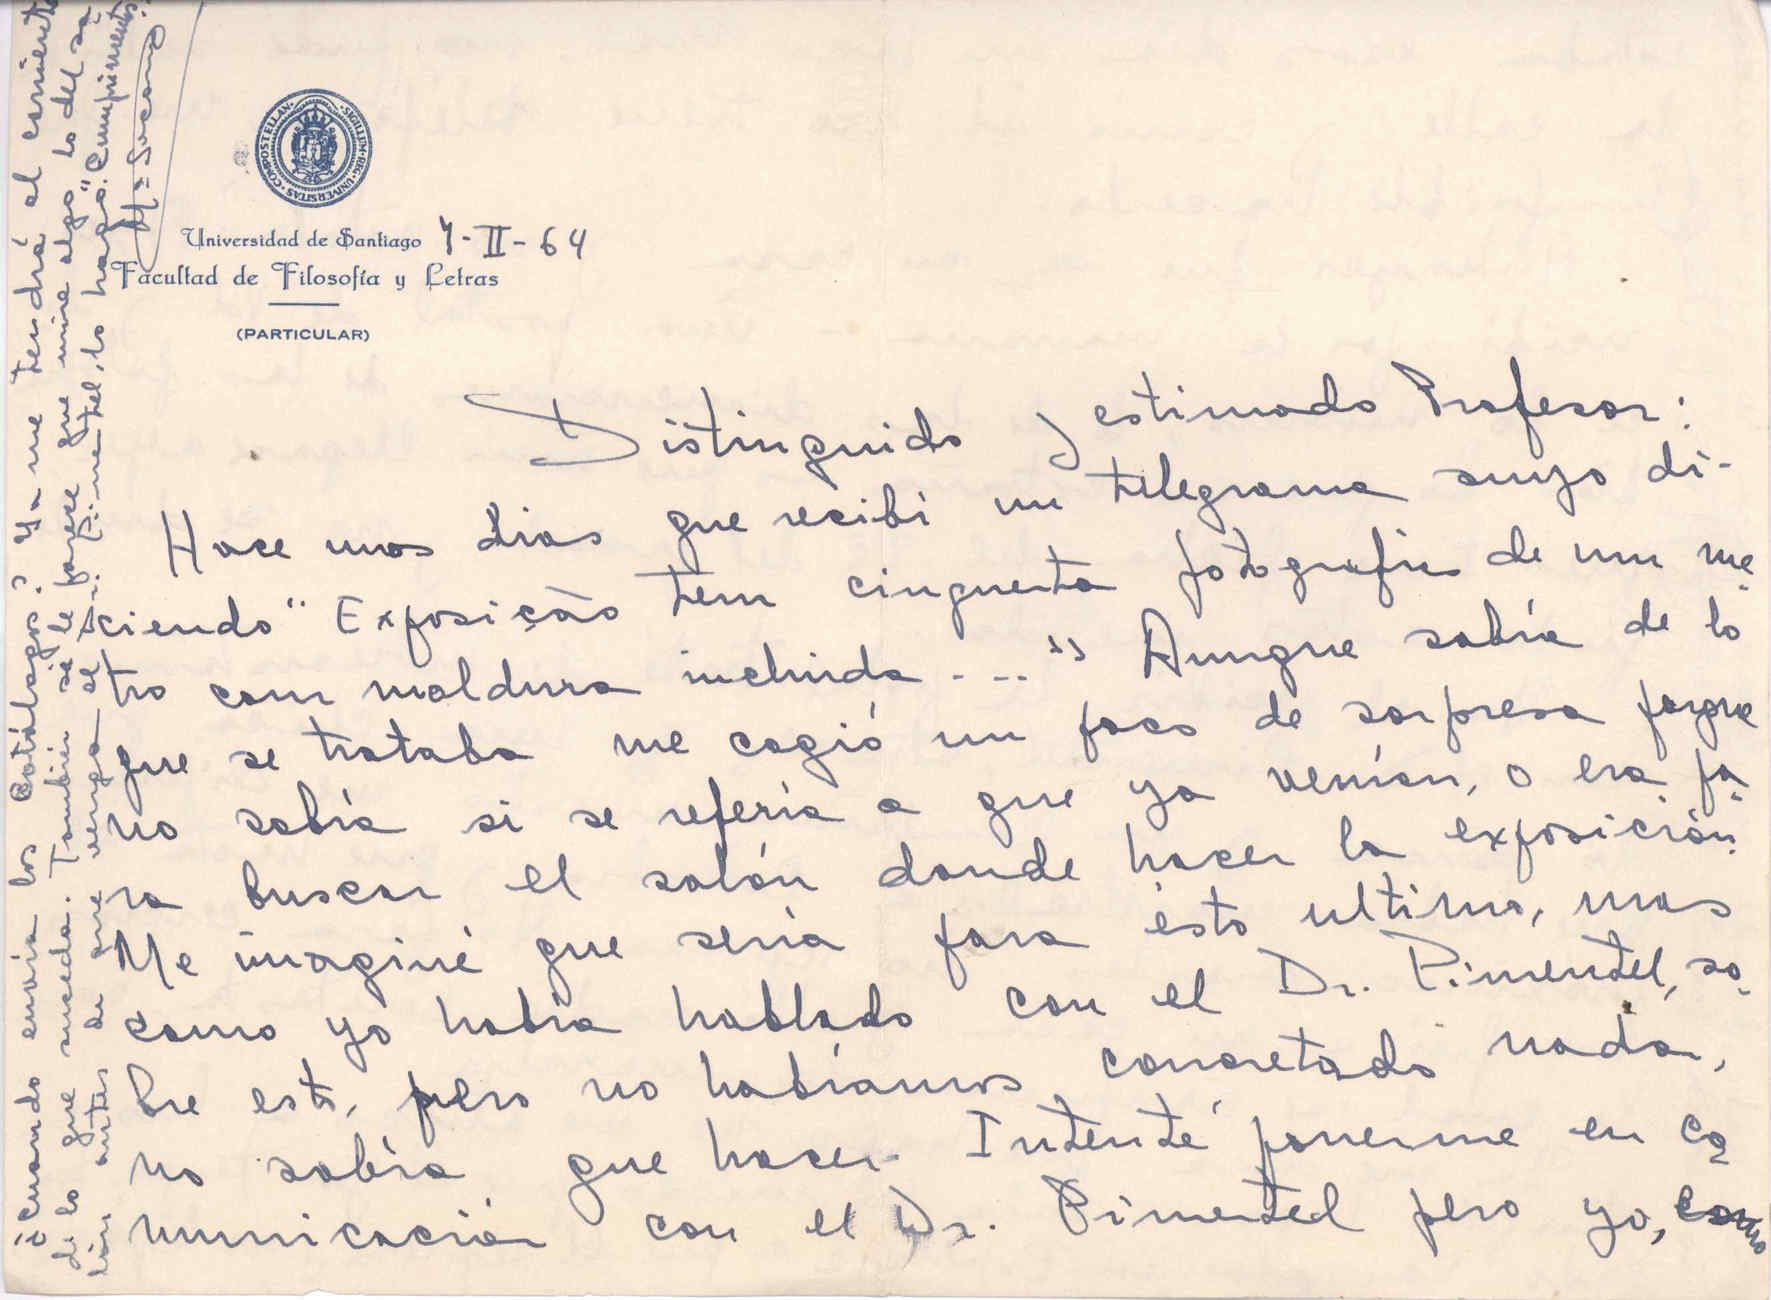 SIGILLUM·REG·UNIVERSITAS·COMPOSTELLAN·
Universidad de Santiago 7-II-64
Facultad de Filosofía y Letras
(PARTICULAR)
Distinguido y estimado Profesor:
Hace unos dias que recibí un telegrama suyo di-
ciendo "Exposição tem cinquenta fotografias de um me-
tro com moldura incluida...." Aunque sabía de lo
que se trataba me cogió un poco de sorpresa porque
no sabía si se refería a que ya venían, o era pa-
ra buscar el salón donde hacer la exposición.
Me imaginé que sería para esto ultimo, mas
como yo había hablado con el Dr. Pimentel, so-
bre esto, pero no habíamos concretado nada,
no sabía que hacer. Intenté ponerme en co-
municación con el Dr. Pimentel pero yo, como
¿Cuando envía los Catálogos? Ya me tendrá al corriente
de lo que suceda. También si le parece que mire algo lo del sa-
lón antes de que venga el Dr. Pimentel, lo hago. Cumprimentos.